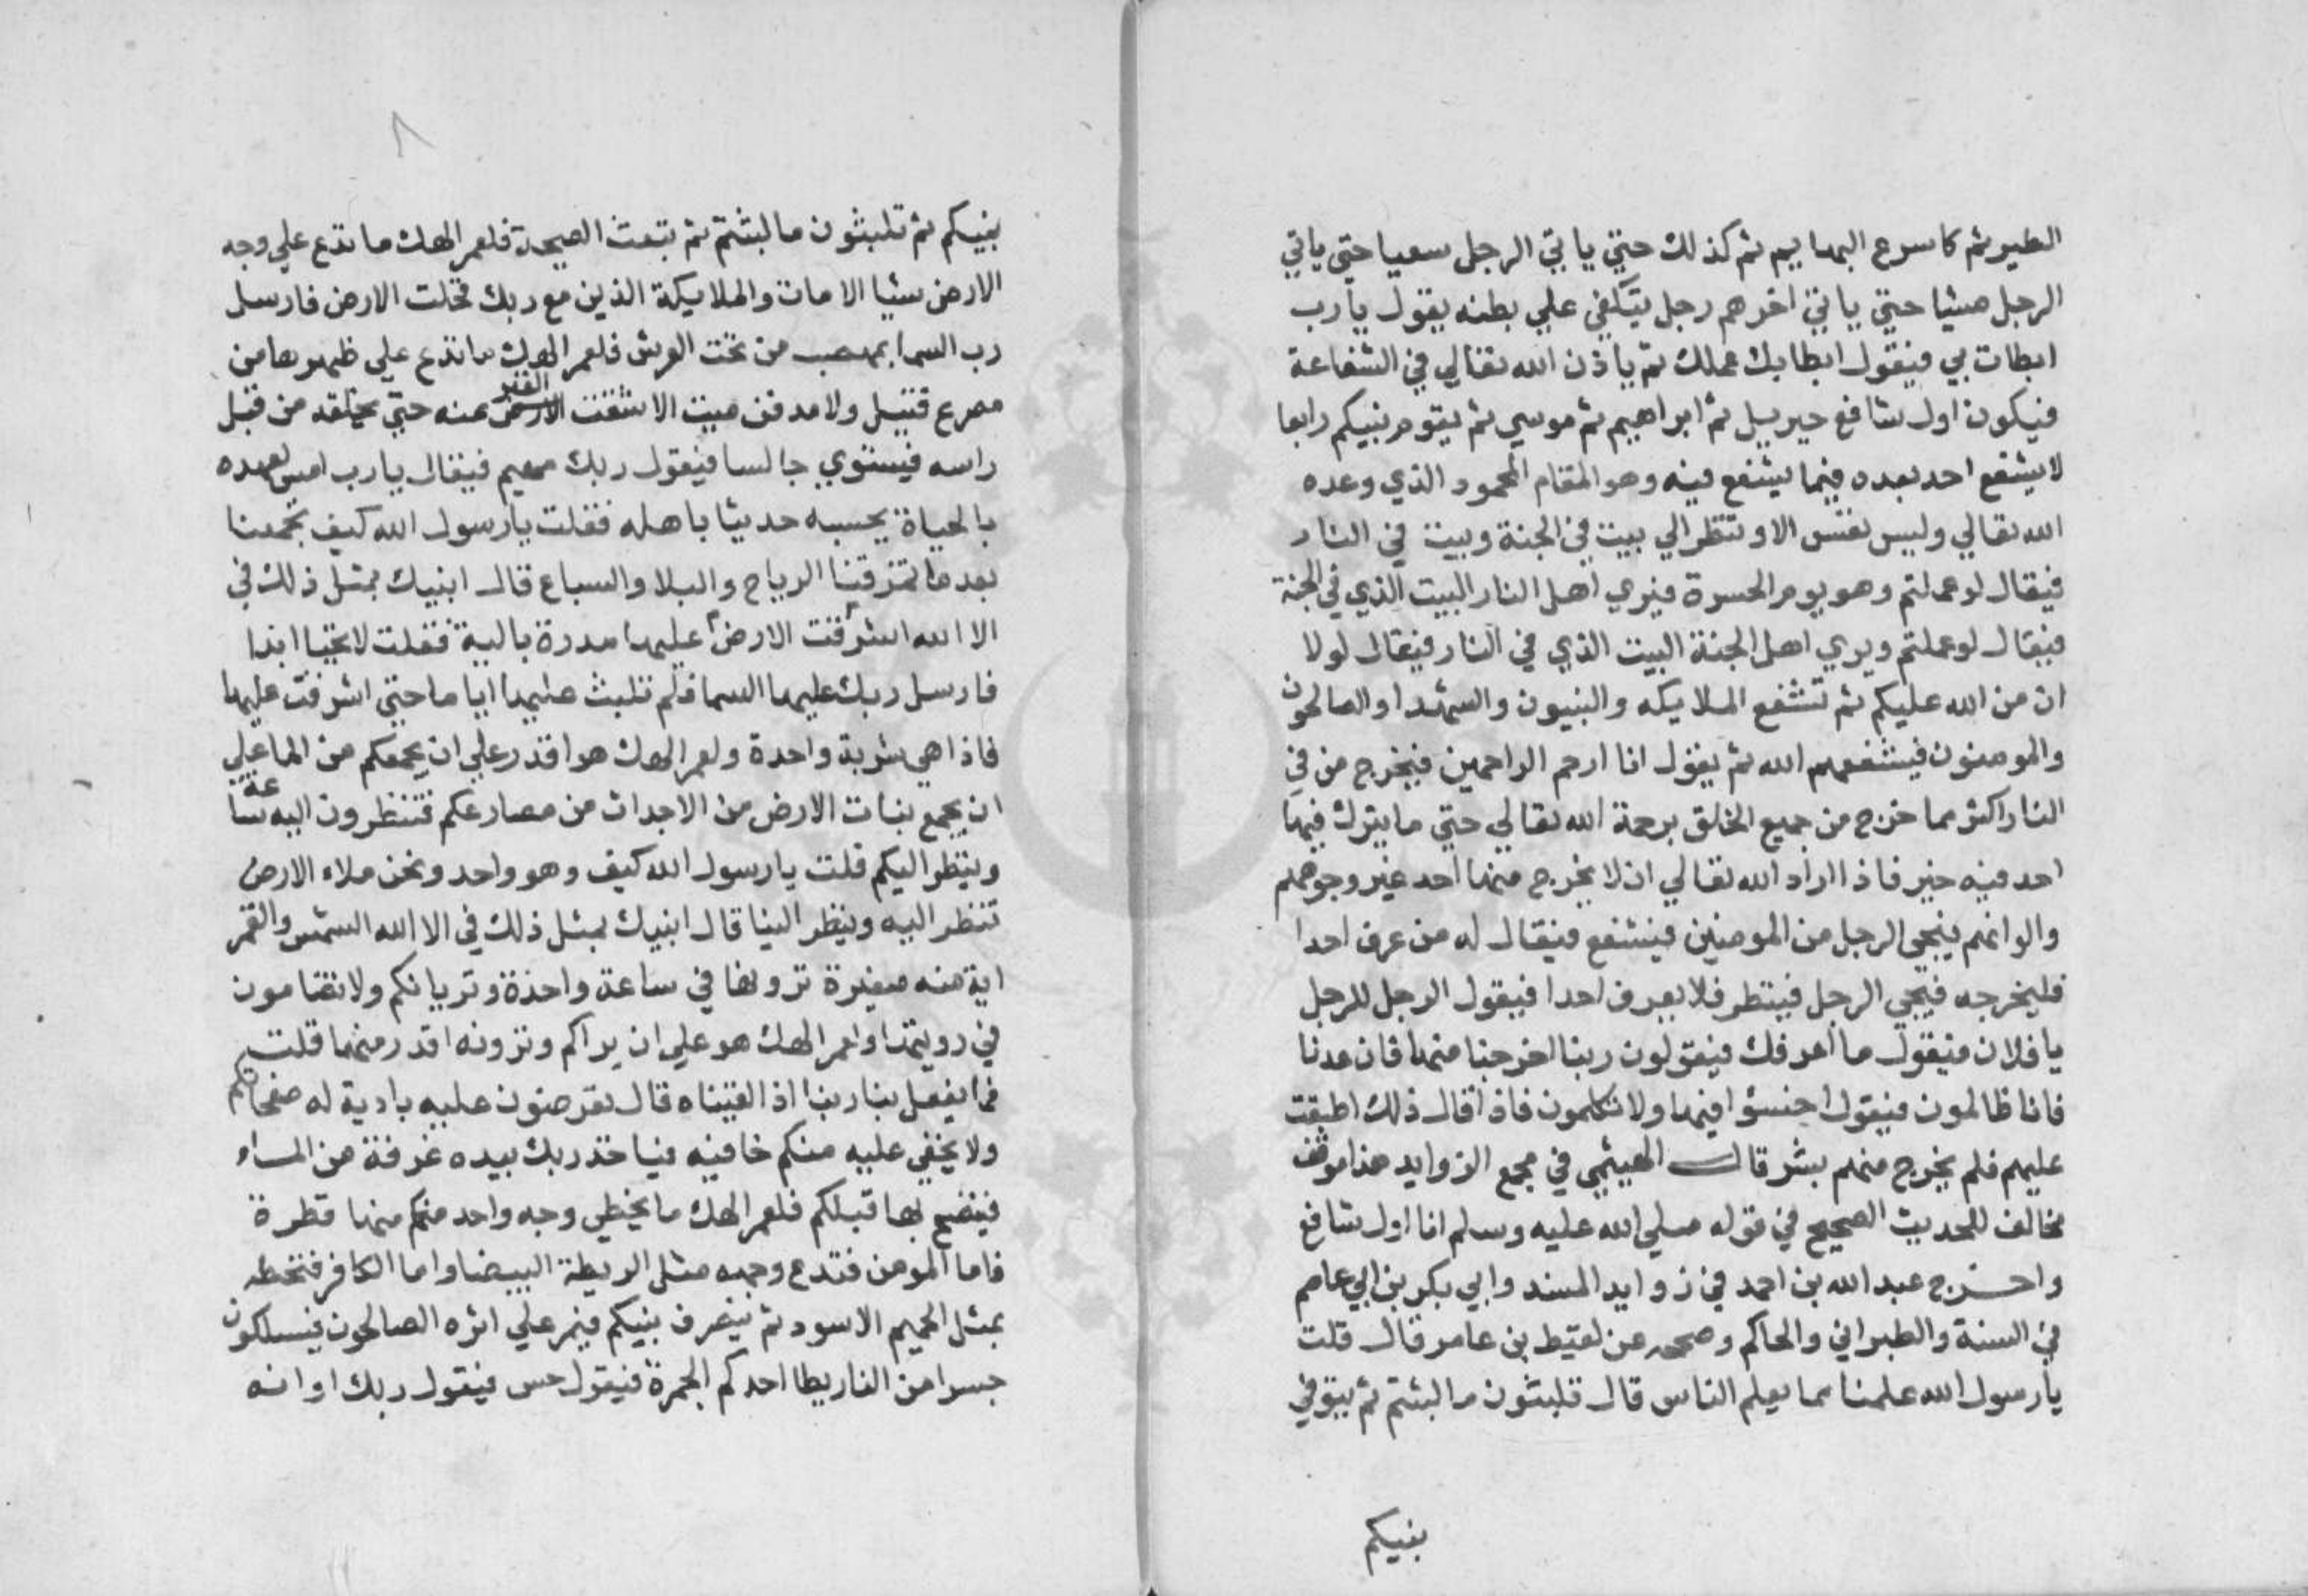 الطير ثم كاسرع البهايم ثم كذلك حتي ياتي الرجل سعيا حتي ياتي
الرجل مشيا حتي ياتي اخرهم رجل يتكفي علي بطنه يقول يارب
ابطات بي فيقول ابطا بك عملك ثم ياذن الله تعالي في الشفاعة
فيكون اول شافع جبريل ثم ابراهيم ثم موسي ثم يقوم نبيكم رابعا
لا يشفع احد بعده فيما يشفع فيه وهو المقام المحمود الذي وعده
الله تعالي وليس نفس الا وتنظر الي بيت في الجنة وبيت في النار
فيقال لو عملتم وهو يوم الحسرة فيري اهل النار البيت الذي في الجنة
فيقال لو عملتم ويري اهل الجنة البيت الذي في النار فيقال لولا
ان من الله عليكم ثم تشفع الملايكه والنبيون والشهدا والصالحون
والمومنون فيشفعهم الله ثم يقول انا ارحم الراحمين فيخرج من في
النار اكثر مما خرج من جميع الخلق برحمة الله تعالي حتي ما يترك فيها
احد فيه خير فاذا اراد الله تعالي ان لا يخرج منها احد غير وجوههم
والوانهم فيجي الرجل من المومنين فيشفع فيقال له من عرف احدا
فليخرجه فيجي الرجل فينظر فلا يعرف احدا فيقول الرجل للرجل
يا فلان فيقول ما اعرفك فيقولون ربنا اخرجنا منها فان عدنا
فانا ظالمون فيقول اخسؤا فيها ولا تكلمون فاذا قال ذلك اطبقت
عليهم فلم يخرج منهم بشر قال الهيثمي في مجمع الزوايد هذا موقف
مخالف للحديث الصحيح في قوله صلي الله عليه وسلم انا اول شافع
واخرج عبد الله بن احمد في زوايد المسند وابي بكر بن ابي عاصم
في السنة والطبراني والحاكم وصححه عن لقيط بن عامر قال قلت
يارسول الله علمنا مما يعلم الناس قال تلبثون ما لبثتم ثم يتوفي
نبيكم
٨
نبيكم ثم تلبثون ما لبثتم ثم تبعث الصيحة فلعمر الهك ما تدع علي وجه
الارض شيا الا مات والملايكة الذين مع ربك فخلت الارض فارسل
رب السما بهضب من تحت العرش فلعمر الهك ما تدع علي ظهرها من
مصرع قتيل ولا مدفن ميت الا شقت القبر عنه حتي تخلقه من قبل
راسه فيستوي جالسا فيقول ربك مهيم فيقال يارب امس لعهده
بالحياة يحسبه حديثا باهله فقلت يارسول الله كيف يجمعنا
بعد ما تمزقنا الرياح والبلا والسباع قال انبيك بمثل ذلك في
الا الله اشرفت الارض عليها مدرة بالية فقلت لا تحيا ابدا
فارسل ربك عليها السما فلم تلبث عليها اياما حتي اشرفت عليها
فاذا هي شربة واحدة ولعمر الهك هو اقدر علي ان يجمعكم من الما علي
ان يجمع نبات الارض من الاجداث من مصارعكم فتنظرون اليه ساعة
وينظر اليكم قلت يارسول الله كيف وهو واحد ونحن ملاء الارض
تنظر اليه وينظر الينا قال انبيك بمثل ذلك في الا الله الشمس والقمر
اية منه صغيرة ترونها في ساعة واحدة وتريانكم ولا تضامون
في رويتهما ولعمر الهك هو علي ان يراكم وترونه اقدر منهما قلت
فما يفعل بنا ربنا اذا لقيناه قال تعرضون عليه بادية له صفحاتكم
ولا يخفي عليه منكم خافيه فياخذ ربك بيده غرفة من الماء
فينضح بها قبلكم فلعمر الهك ما يخطي وجه واحد منكم منها قطرة
فاما المومن فتدع وجهه مثل الريطة البيضا واما الكافر فتخطمه
بمثل الحميم الاسود ثم ينصرف نبيكم فيمر علي اثره الصالحون فيسلكون
جسرا من النار يطا احدكم الجمرة فيقول حس فيقول ربك او انه